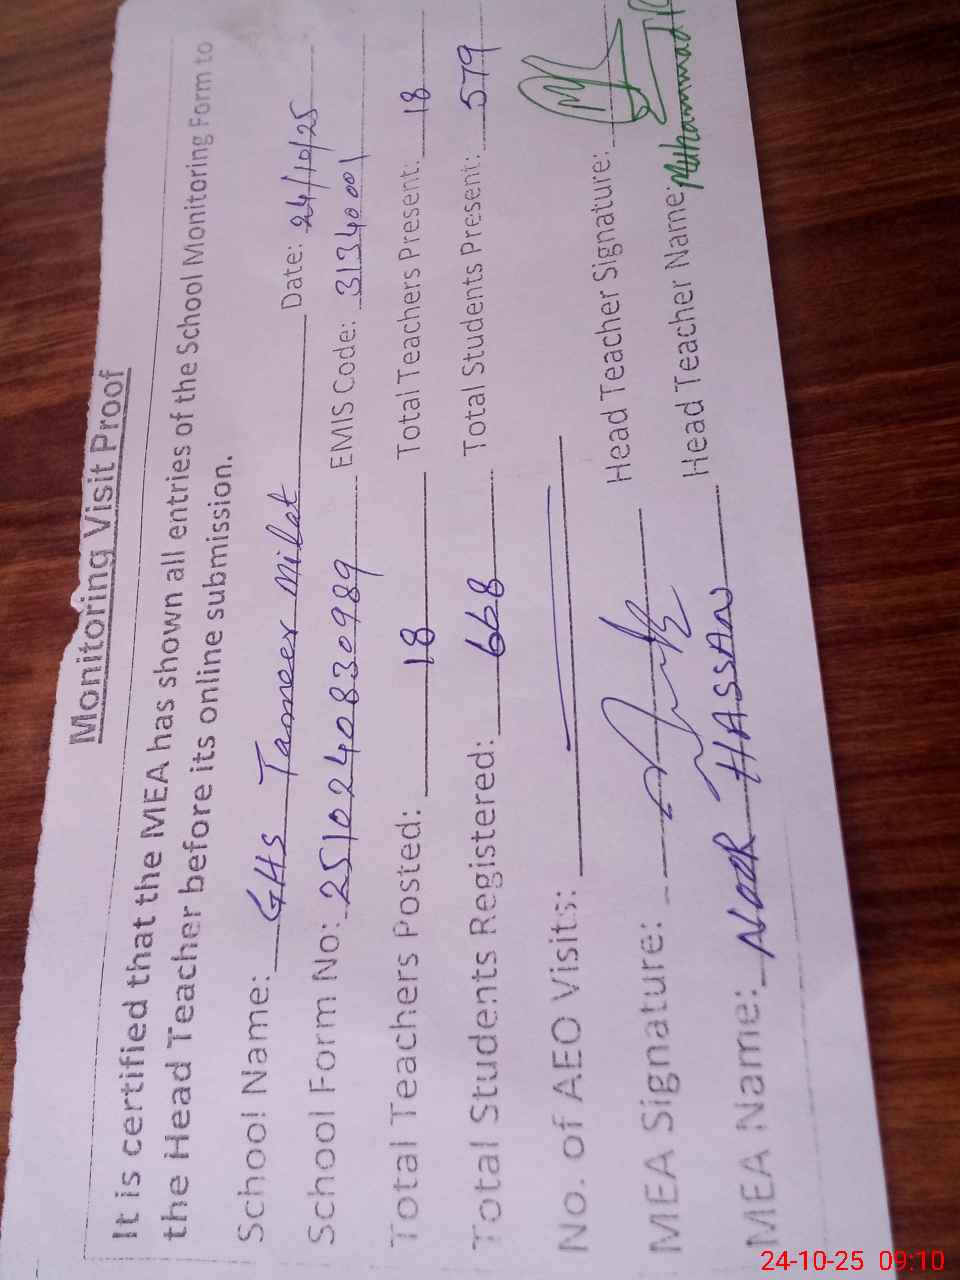 Monitoring Visit Proof
It is certified that the MEA has shown all entries of the School Monitoring Form to
the Head Teacher before its online submission.
School Name: GHS Tameer Millat Date: 24/10/25
School Form No: 2510240830989 EMIS Code: 31340001
Total Teachers Posted: 18 Total Teachers Present: 18
Total Students Registered: 668 Total Students Present: 579
No. of AEO Visits:
MEA Signature: Head Teacher Signature:
MEA Name: NooR HASSAN Head Teacher Name: Muhammad
24-10-25 09:10